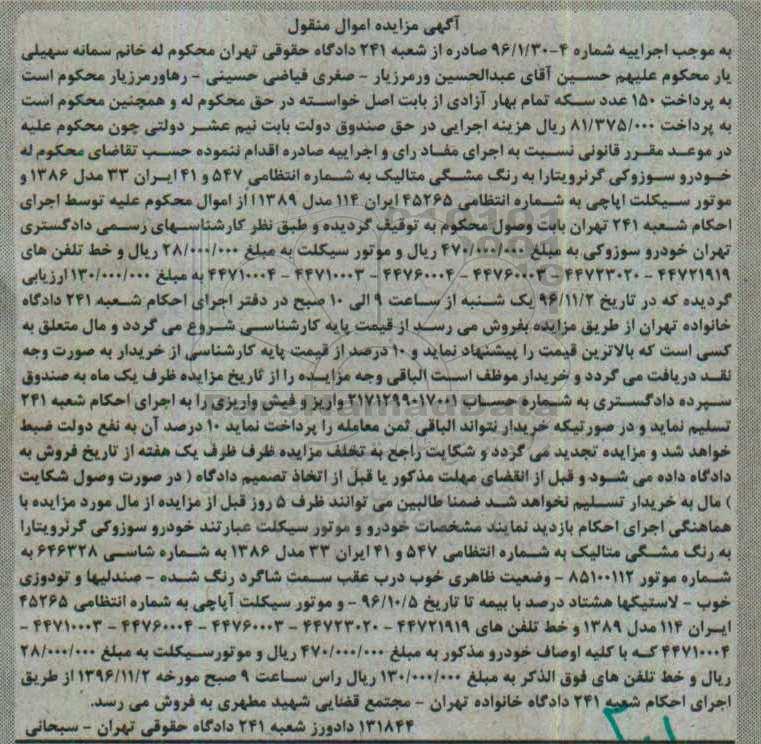 آگهی مزایده اموال منقول
به موجب اجراییه شماره ۴-۹۶/۱/۳۰ صادره از شعبه ۲۴۱ دادگاه حقوقی تهران محکوم له خانم سمانه سهیلی
یار محکوم علیهم حسین آقای عبدالحسین ورمرزیار - صغری فیاضی حسینی - رهاورمرزیار محکوم است
به پرداخت ۱۵۰ عدد سکه تمام بهار آزادی از بابت اصل خواسته در حق محکوم له و همچنین محکوم است
به پرداخت ۸۱/۳۷۵/۰۰۰ ریال هزینه اجرایی در حق صندوق دولت بابت نیم عشر دولتی چون محکوم علیه
در موعد مقرر قانونی نسبت به اجرای مفاد رای و اجراییه صادره اقدام ننموده حسب تقاضای محکوم له
خودرو سوزوکی گرنرویتارا به رنگ مشگی متالیک به شماره انتظامی ۵۴۷ و ۴۱ ایران ۳۳ مدل ۱۳۸۶ و
موتور سیکلت اپاچی به شماره انتظامی ۴۵۲۶۵ ایران ۱۱۴ مدل ۱۳۸۹ از اموال محکوم علیه توسط اجرای
احکام شعبه ۲۴۱ تهران بابت وصول محکوم به توقیف گردیده و طبق نظر کارشناسهای رسمی دادگستری
تهران خودرو سوزوکی به مبلغ ۴۷۰/۰۰۰/۰۰۰ ریال و موتور سیکلت به مبلغ ۲۸/۰۰۰/۰۰۰ ریال و خط تلفن های
۴۴۷۲۱۹۱۹ - ۴۴۷۲۳۰۲۰ - ۴۴۷۶۰۰۰۳ - ۴۴۷۶۰۰۰۴ - ۴۴۷۱۰۰۰۳ - ۴۴۷۱۰۰۰۴ به مبلغ ۱۳۰/۰۰۰/۰۰۰ ارزیابی
گردیده که در تاریخ ۹۶/۱۱/۲ یک شنبه از ساعت ۹ الی ۱۰ صبح در دفتر اجرای احکام شعبه ۲۴۱ دادگاه
خانواده تهران از طریق مزایده بفروش می رسد از قیمت پایه کارشناسی شروع می گردد و مال متعلق به
کسی است که بالاترین قیمت را پیشنهاد نماید و ۱۰ درصد از قیمت پایه کارشناسی از خریدار به صورت وجه
نقد دریافت می گردد و خریدار موظف است الباقی وجه مزایده را از تاریخ مزایده ظرف یک ماه به صندوق
سپرده دادگستری به شماره حساب ۲۱۷۱۲۹۹۰۱۷۰۰۱ واریز و فیش واریزی را به اجرای احکام شعبه ۲۴۱
تسلیم نماید و در صورتیکه خریدار نتواند الباقی ثمن معامله را پرداخت نماید ۱۰ درصد آن به نفع دولت ضبط
خواهد شد و مزایده تجدید می گردد و شکایت راجع به تخلف مزایده ظرف ظرف یک هفته از تاریخ فروش به
دادگاه داده می شود و قبل از انقضای مهلت مذکور یا قبل از اتخاذ تصمیم دادگاه ( در صورت وصول شکایت
) مال به خریدار تسلیم نخواهد شد ضمنا طالبین می توانند ظرف ۵ روز قبل از مزایده از مال مورد مزایده با
هماهنگی اجرای احکام بازدید نمایند مشخصات خودرو و موتور سیکلت عبارتند خودرو سوزوکی گرنرویتارا
به رنگ مشگی متالیک به شماره انتظامی ۵۴۷ و ۴۱ ایران ۳۳ مدل ۱۳۸۶ به شماره شاسی ۶۴۶۳۲۸ به
شماره موتور ۸۵۱۰۰۱۱۲ - وضعیت ظاهری خوب درب عقب سمت شاگرد رنگ شده - صندلیها و تودوزی
خوب - لاستیکها هشتاد درصد با بیمه تا تاریخ ۹۶/۱۰/۵ - و موتور سیکلت آپاچی به شماره انتظامی ۴۵۲۶۵
ایران ۱۱۴ مدل ۱۳۸۹ و خط تلفن های ۴۴۷۲۱۹۱۹ - ۴۴۷۲۳۰۲۰ - ۴۴۷۶۰۰۰۳ - ۴۴۷۶۰۰۰۴ - ۴۴۷۱۰۰۰۳ -
۴۴۷۱۰۰۰۴ که با کلیه اوصاف خودرو مذکور به مبلغ ۴۷۰/۰۰۰/۰۰۰ ریال و موتورسیکلت به مبلغ ۲۸/۰۰۰/۰۰۰
ریال و خط تلفن های فوق الذکر به مبلغ ۱۳۰/۰۰۰/۰۰۰ ریال راس ساعت ۹ صبح مورخه ۱۳۹۶/۱۱/۲ از طریق
اجرای احکام شعبه ۲۴۱ دادگاه خانواده تهران - مجتمع قضایی شهید مطهری به فروش می رسد.
۱۳۱۸۴۴ دادورز شعبه ۲۴۱ دادگاه حقوقی تهران - سبحانی